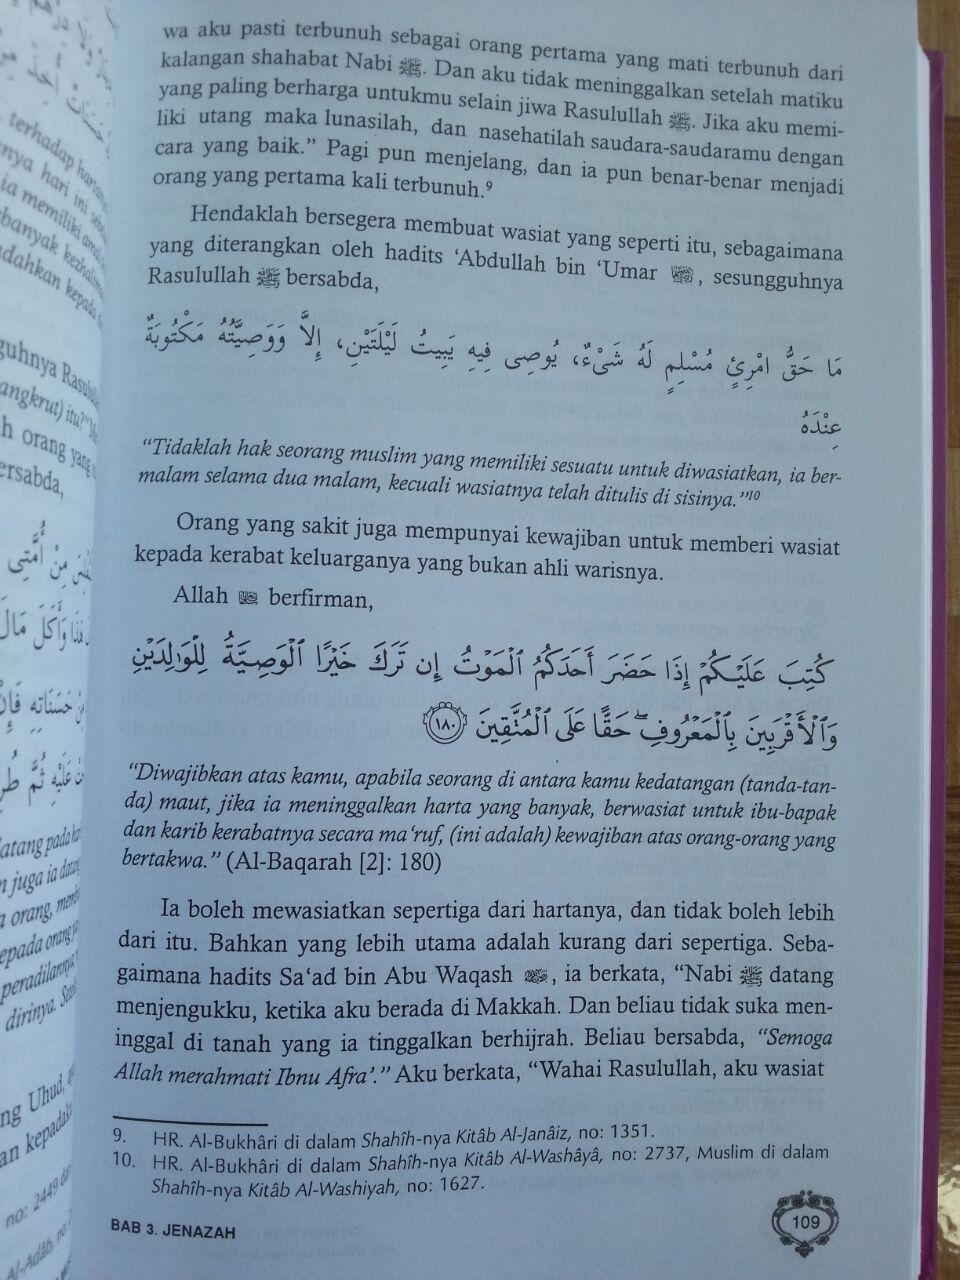 wa aku pasti terbunuh sebagai orang pertama yang mati terbunuh dari
kalangan shahabat Nabi ﷺ. Dan aku tidak meninggalkan setelah matiku
yang paling berharga untukmu selain jiwa Rasulullah ﷺ. Jika aku memi-
liki utang maka lunasilah, dan nasehatilah saudara-saudaramu dengan
cara yang baik.” Pagi pun menjelang, dan ia pun benar-benar menjadi
orang yang pertama kali terbunuh.⁹
Hendaklah bersegera membuat wasiat yang seperti itu, sebagaimana
yang diterangkan oleh hadits ‘Abdullah bin ‘Umar , sesungguhnya
Rasulullah ﷺ bersabda,
مَا حَقُّ امْرِئٍ مُسْلِمٍ لَهُ شَيْءٌ، يُوصِى فِيهِ يَبِيتُ لَيْلَتَيْنِ، إِلاَّ وَوَصِيَّتُهُ مَكْتُوبَةٌ
عِنْدَهُ
“Tidaklah hak seorang muslim yang memiliki sesuatu untuk diwasiatkan, ia ber-
malam selama dua malam, kecuali wasiatnya telah ditulis di sisinya.”¹⁰
Orang yang sakit juga mempunyai kewajiban untuk memberi wasiat
kepada kerabat keluarganya yang bukan ahli warisnya.
Allah berfirman,
كُتِبَ عَلَيْكُمْ إِذَا حَضَرَ أَحَدَكُمُ ٱلْمَوْتُ إِن تَرَكَ خَيْرًا ٱلْوَصِيَّةُ لِلْوَٰلِدَيْنِ
وَٱلْأَقْرَبِينَ بِٱلْمَعْرُوفِ ۖ حَقًّا عَلَى ٱلْمُتَّقِينَ ١٨٠
“Diwajibkan atas kamu, apabila seorang di antara kamu kedatangan (tanda-tan-
da) maut, jika ia meninggalkan harta yang banyak, berwasiat untuk ibu-bapak
dan karib kerabatnya secara ma‘ruf, (ini adalah) kewajiban atas orang-orang yang
bertakwa.” (Al-Baqarah [2]: 180)
Ia boleh mewasiatkan sepertiga dari hartanya, dan tidak boleh lebih
dari itu. Bahkan yang lebih utama adalah kurang dari sepertiga. Seba-
gaimana hadits Sa‘ad bin Abu Waqash , ia berkata, “Nabi ﷺ datang
menjengukku, ketika aku berada di Makkah. Dan beliau tidak suka men-
inggal di tanah yang ia tinggalkan berhijrah. Beliau bersabda, “Semoga
Allah merahmati Ibnu Afra’.” Aku berkata, “Wahai Rasulullah, aku wasiat
9. HR. Al-Bukhâri di dalam Shahîh-nya Kitâb Al-Janâiz, no: 1351.
10. HR. Al-Bukhâri di dalam Shahîh-nya Kitâb Al-Washâyâ, no: 2737, Muslim di dalam
Shahîh-nya Kitâb Al-Washiyah, no: 1627.
BAB 3. JENAZAH
109